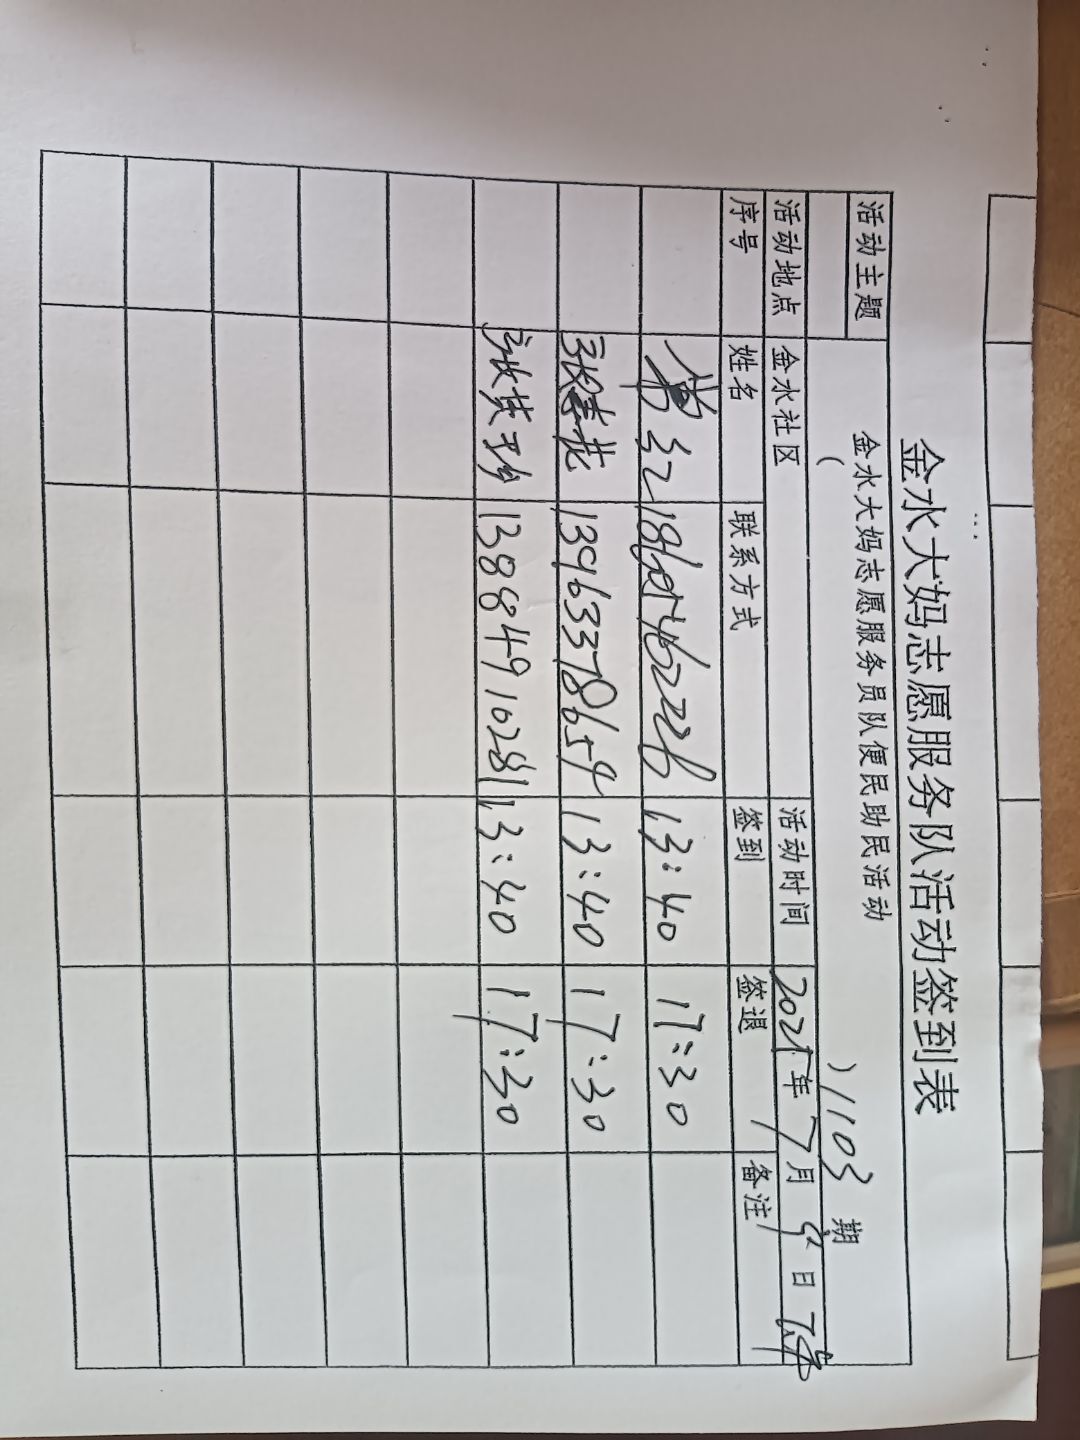 金水大妈志愿服务队活动签到表
活动主题 金水大妈志愿服务员队便民助民活动
( ) 1103 期
活动地点 金水社区 活动时间 2025年7月9日下午
序号 姓名 联系方式 签到 签退 备注
13:40 17:30
张春花 13963378659 13:40 17:30
13884910281 13:40 17:30